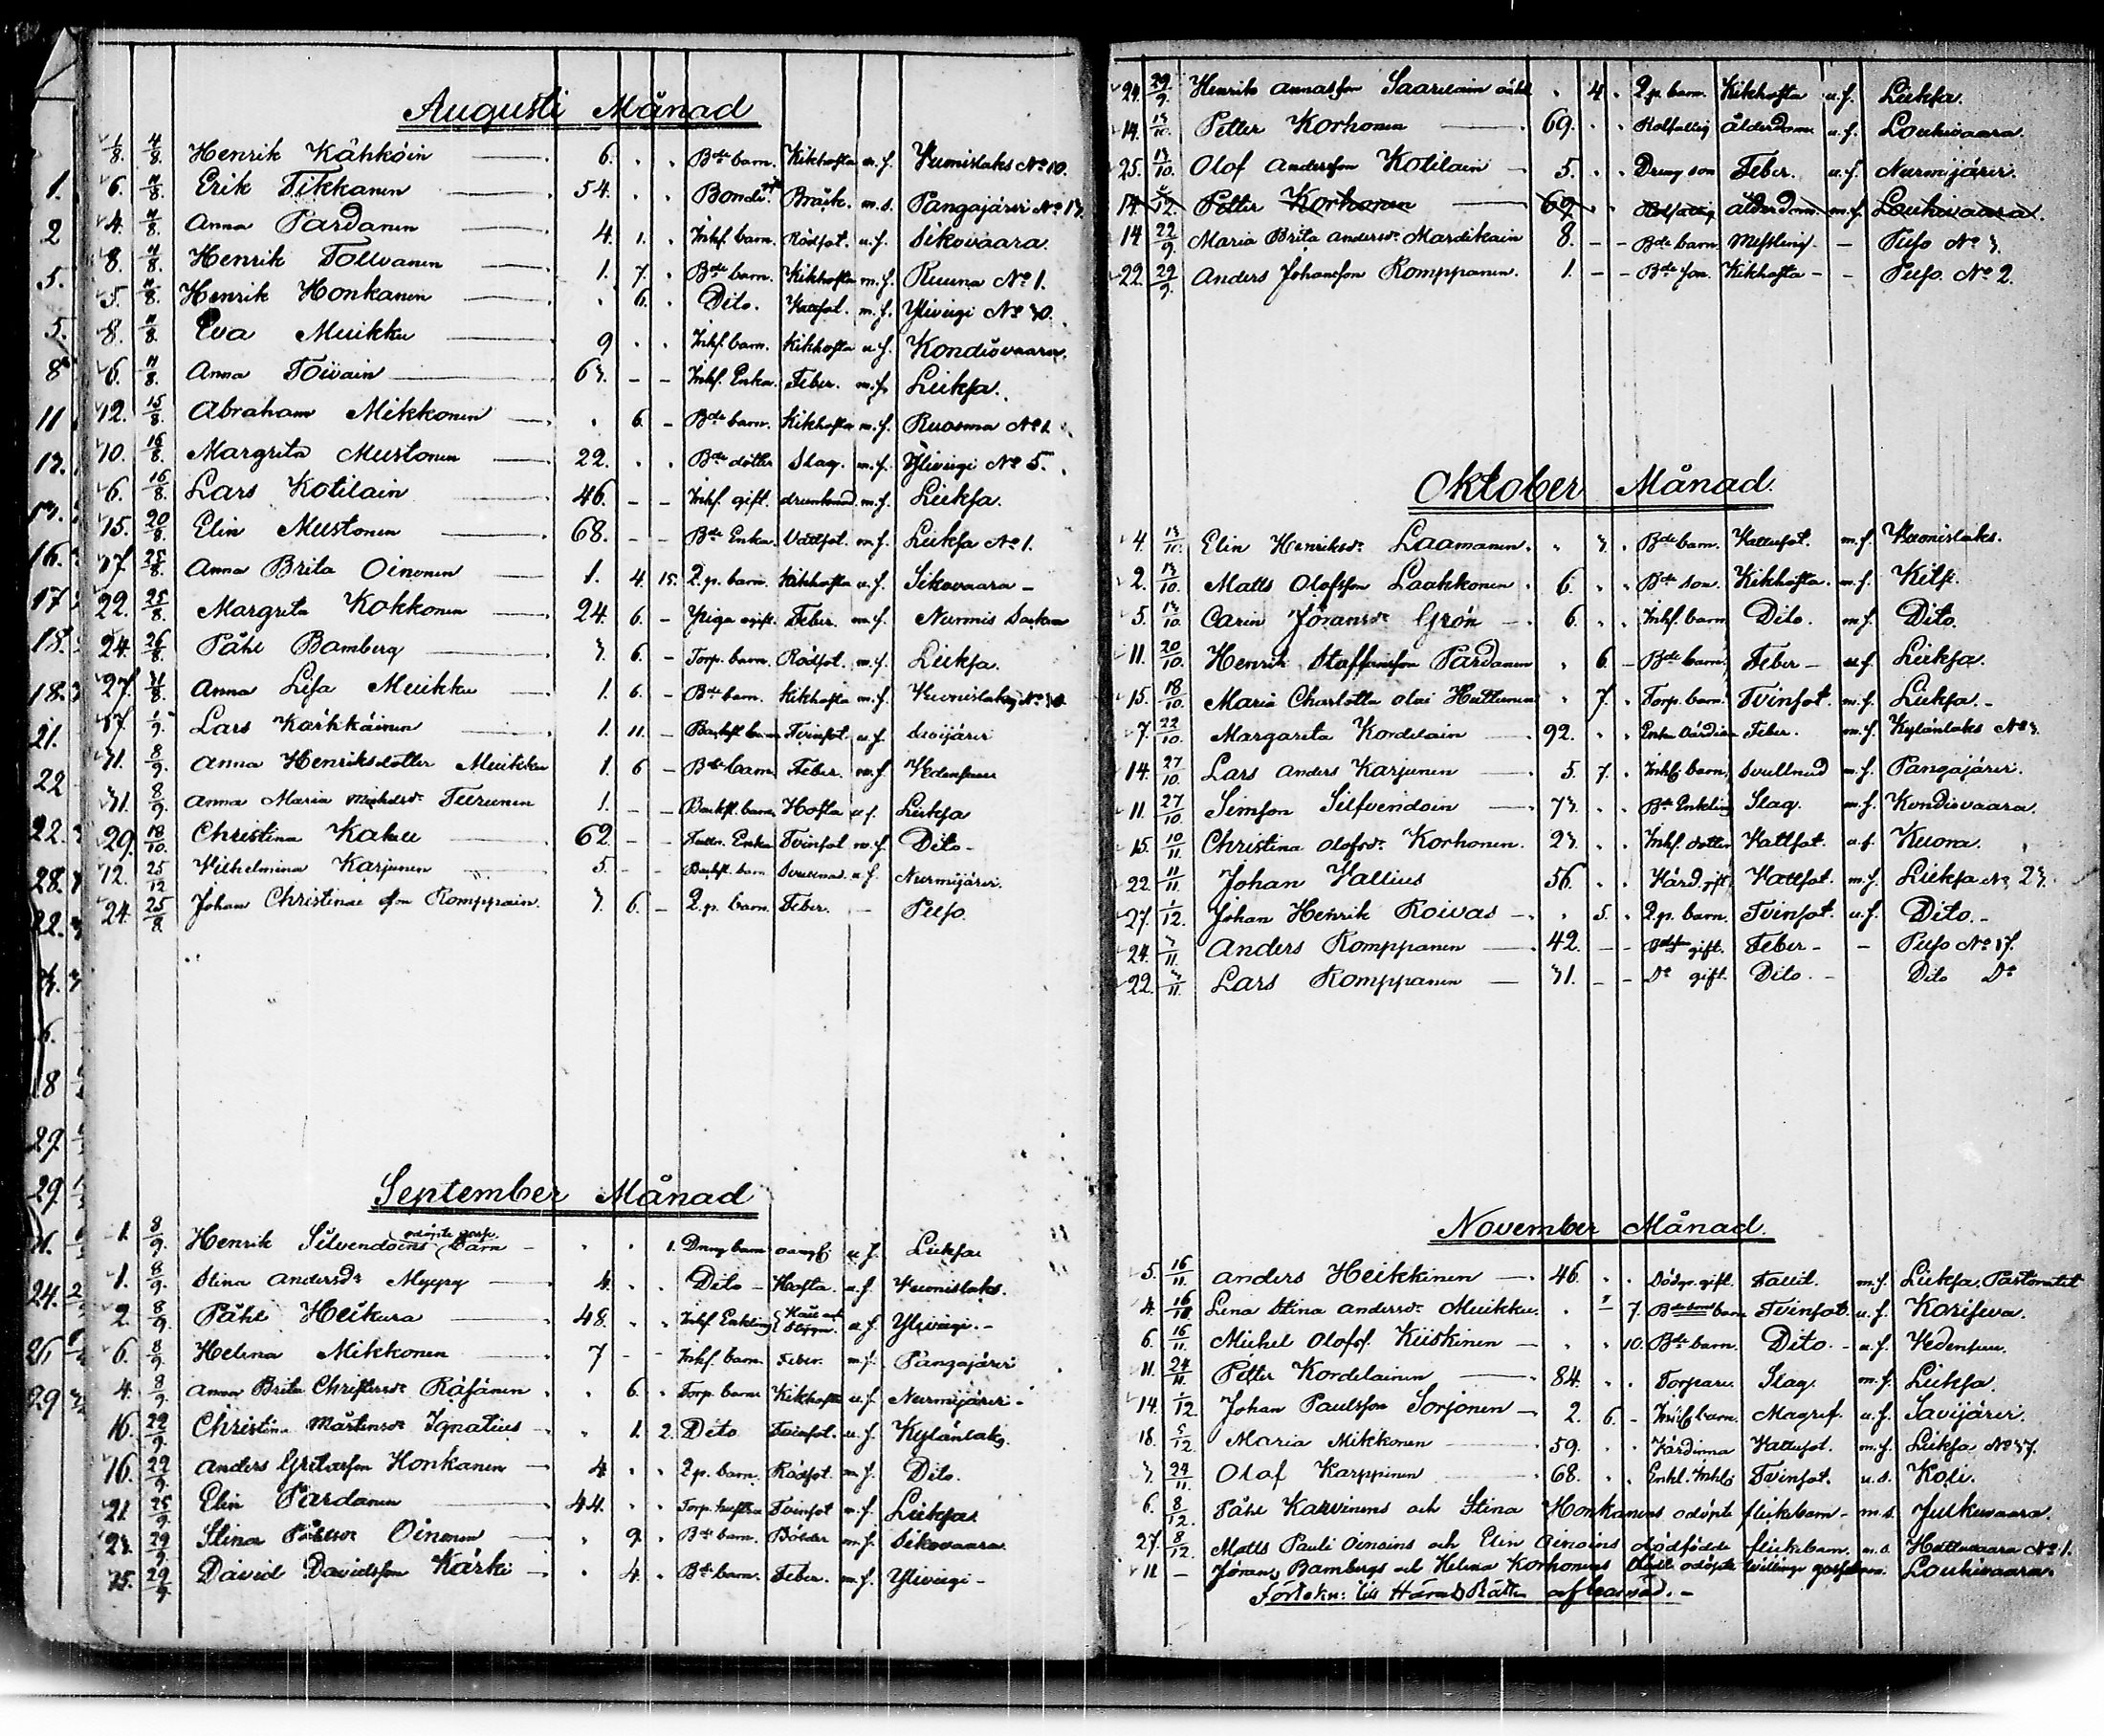 Augusti Månad
1/8. 4/8. Henrik Kähköin 6. Bde barn. Kikhosta m.f. Wuonislaks No 10.
6. 11/8. Erik Tikkanen 54. Bonde Bråck. m.s. Pangajärvi No 13.
4. 11/8. Anna Pardanen 4. 1. Inhs. barn. Rödsot. u.f. Sikovaara.
8. 11/8. Henrik Tollvanen 1. 7. Bde barn. Kikhosta m.f. Ruuna No 1.
5. 11/8. Henrik Honkanen 6. Dito. Wattsot. m.f. Ylivirgi No 30.
8. 11/8. Eva Muikku 9 Inhs. barn. Kikhosta u.f. Kondiovaara.
6. 11/8. Anna Toivain 63. Inhs. Enka. Feber. m.f. Lieksa.
12. 15/8. Abraham Mikkonen 6. Bde barn. Kikhosta m.f. Ruosma No 1.
10. 16/8. Margreta Mustonen 22. Bde dotter Slag. m.f. Ylivirgi No 5.
6. 16/8. Lars Kotilain 46. Inhs. gift. drunknad m.f. Lieksa.
15. 20/8. Elin Mustonen 68. Bde Enka. Wattsot. m.f. Lieksa No 1.
17. 25/8. Anna Brita Oinonen 1. 4. 15. 2.p. barn. Kikhosta u.f. Sikovaara
22. 25/8. Margreta Kokkonen 24. 6. Piga ogift. Feber. m.f. Nurmis Socken
24. 26/8. Påhl Bamberg 3. 6. Torp. barn. Rödsot. m.f. Lieksa.
27. 31/8. Anna Lisa Muikku 1. 6. Bde barn. Kikhosta m.f. Wuonislaks No 30
17. 1/9. Lars Karhkäinen 1. 11. Tvinsot u.f. Savijärvi
31. 8/9. Anna Henriksdotter Muikku 1. 6 Bde barn Feber. m.f. Wedensuu
31. 8/9. Anna Maria Michelsdr Teerinen 1. Backst. barn Hosta u.f. Lieksa
29. 18/10. Christina Kakui 62 Enka Tvinsot m.f. Dito
12. 25/12 Wilhelmina Karjunen 5. Backst. barn u.f. Nurmijärvi.
24. 25/8. Johan Christinae son Romppain. 3. 6. 2.p. barn. Feber. Puso.
September Månad
1. 8/9. Henrik Silvendoins odöpte goss Barn 1. Dreng barn u.f. Lieksa
1. 8/9. Stina Andersdr Myyry 4. Dito Hosta. u.f. Wuonislaks.
2. 8/9. Påhl Heikura 48. Inhs. Enkling u.f. Ylivirgi.
6. 8/9. Helena Mikkonen 7 Inhs. barn. Feber. m.f. Pangajärvi
4. 8/9. Anna Brita Christersdr Räsänen 6. Torp. barn. Kikhosta u.f. Nurmijärvi
16. 22/9. Christina Mårtensdr Ignatius 1. 2. Dito Tvinsot. u.f. Kylänlaks.
16. 22/9. Anders Gretasson Honkanen 4 2.p. barn. Rödsot. m.f. Dito.
21. 25/9. Elin Pardanen 44. Torp. hustru Tvinsot m.f. Lieksa
23. 29/9. Stina Påhlsdr Oinonen 9. Bde barn. Bölder m.f. Sikovaara.
25. 29/9. David Davidsson Kärki 4. Bde barn. Feber. m.f. Ylivirgi
24. 29/9. Henrik Annasson Saarelain 4. 2.p. barn. Kikhosta u.f. Lieksa.
14. 13/10. Petter Korhonen 69. Rotfattig Ålderdom u.f. Loukivaara.
25. 13/10. Olof Andersson Kotilain 5. Dreng son Feber. u.f. Nurmijärvi.
14. 12. Petter Korhonen 69. Rotfattig Ålderdom m.f. Loukivaara.
14 22/9. Maria Brita Andersdr Mardikain 8. Bde barn. Messling Puso No 3.
22. 29/9. Anders Johansson Romppanen. 1. Bde son. Kikhosta Puso. No 2.
Oktober Månad.
4. 13/10. Elin Henriksdr Laamanen. 3. Bde barn. Wattusot. m.f. Wuonislaks.
2. 13/10. Matts Olofsson Laakkonen 6. Bde son. Kikhosta. m.f. Kitsi.
5. 13/10. Carin Jöransdr Grön 6. Inhs. barn Dito. m.f. Dito.
11. 20/10. Henrik Staffansson Pardanen 6. Bde barn. Feber u.f. Lieksa.
15. 18/10. Maria Charlotta Olai Huttunen 7. Torp. barn. Tvinsot. m.f. Lieksa.
7. 22/10. Margareta Kordelain 92. Enka Feber. m.f. Kylänlaks No 3.
14. 27/10. Lars Anders Karjunen 5. 7. Inhs. barn. Svullnad m.f. Pangajärvi.
11. 27/10. Simson Silfvendoin 73. Bde Enkling Slag. m.f. Kondiovaara.
15. 10/11. Christina Olofsdr Korhonen. 23. Inhs. dotter Wattsot. u.f. Kuora.
22. 11/11. Johan Wallius 56. Wärd. gift. Wattsot. m.f. Lieksa No 23.
27. 1/12. Johan Henrik Roivas 5. 2.p. barn. Tvinsot. u.f. Dito.
24. 3/11. Anders Romppanen 42. Bdeson gift. Feber Puso No 17.
22. 3/11. Lars Romppanen 31. Do gift. Dito. Dito Do
November Månad.
5. 16/11. Anders Heikkinen 46. gift. m.f. Lieksa, Pastoratet
4. 16/11. Lena Stina Andersdr Muikku. 7. Bde barn Tvinsot. u.f. Koriseva.
6. 16/11. Michel Olofs. Kiiskinen 10. Bde barn. Dito. u.f. Wedensuu.
11. 24/11. Petter Kordelainen 84. Torpare. Slag. m.f. Lieksa.
14. 1/12 Johan Paulsson Sorjonen 2. 6. Inhs. barn. Magref. u.f. Savijärvi.
18. 5/12. Maria Mikkonen 59. Wärdinna Wattusot. m.f. Lieksa No 37.
3. 24/11. Olof Karppinen 68. Enkl. Inhs Tvinsot. u.s. Koli.
6. 8/12. Påhl Karvinens och Stina Honkanens odöpte flickebarn m.s. Julkuvaara.
27. 8/12. Matts Pauli Oinoins och Elin Oinoins dödfödde flickebarn. m.s. Hattuvaara No 1.
11 Jöran Bambergs och Helena Korhonens odöpte tvillinge gossebarn. Loukivaara.
Förtekn: till Härads Rätten aflemnad.